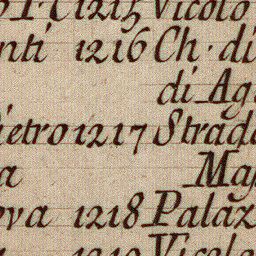 1215 Vicolo
nti 1216 Ch. di
di Ag
ietro 1217 Strada
a Mag
ova 1218 Palaz
1219 Vicolo